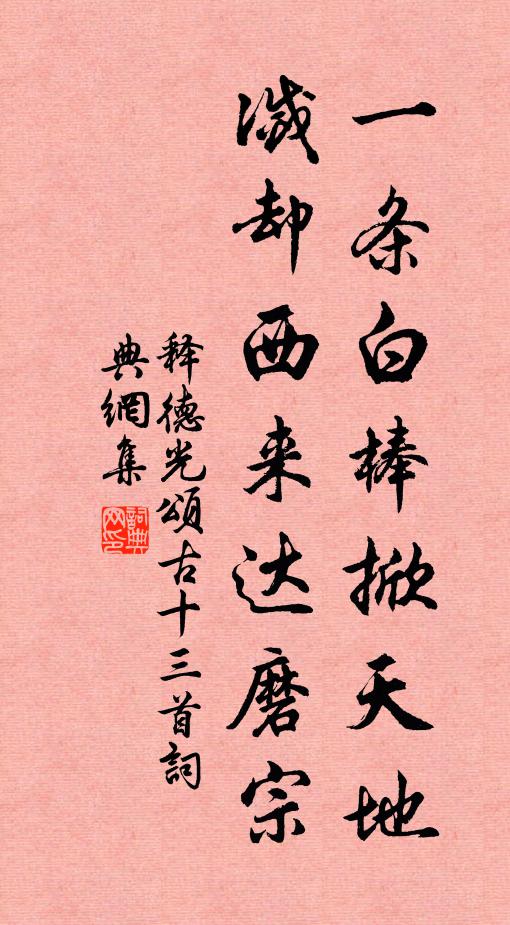 一条白棒掀天地
灭却西来达磨宗
释德光颂古十三首詞
典網集
詞典
网印